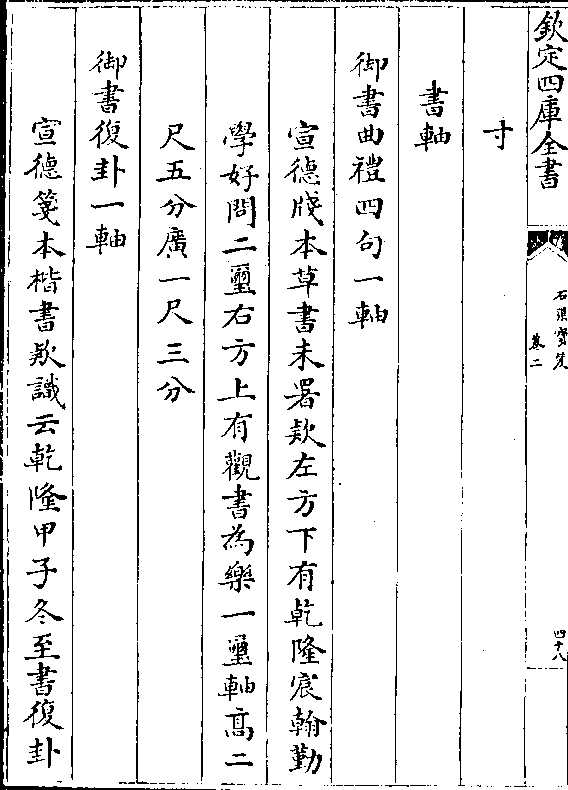 欽定四庫全書
石渠寶笈
卷二
四十八
寸
書軸
御書曲禮四句一軸
宣德牋本草書未署款左方下有乾隆宸翰勤
學好問二璽右方上有觀書為樂一璽軸高二
尺五分廣一尺三分
御書復卦一軸
宣德箋本楷書款識云乾隆甲子冬至書復卦